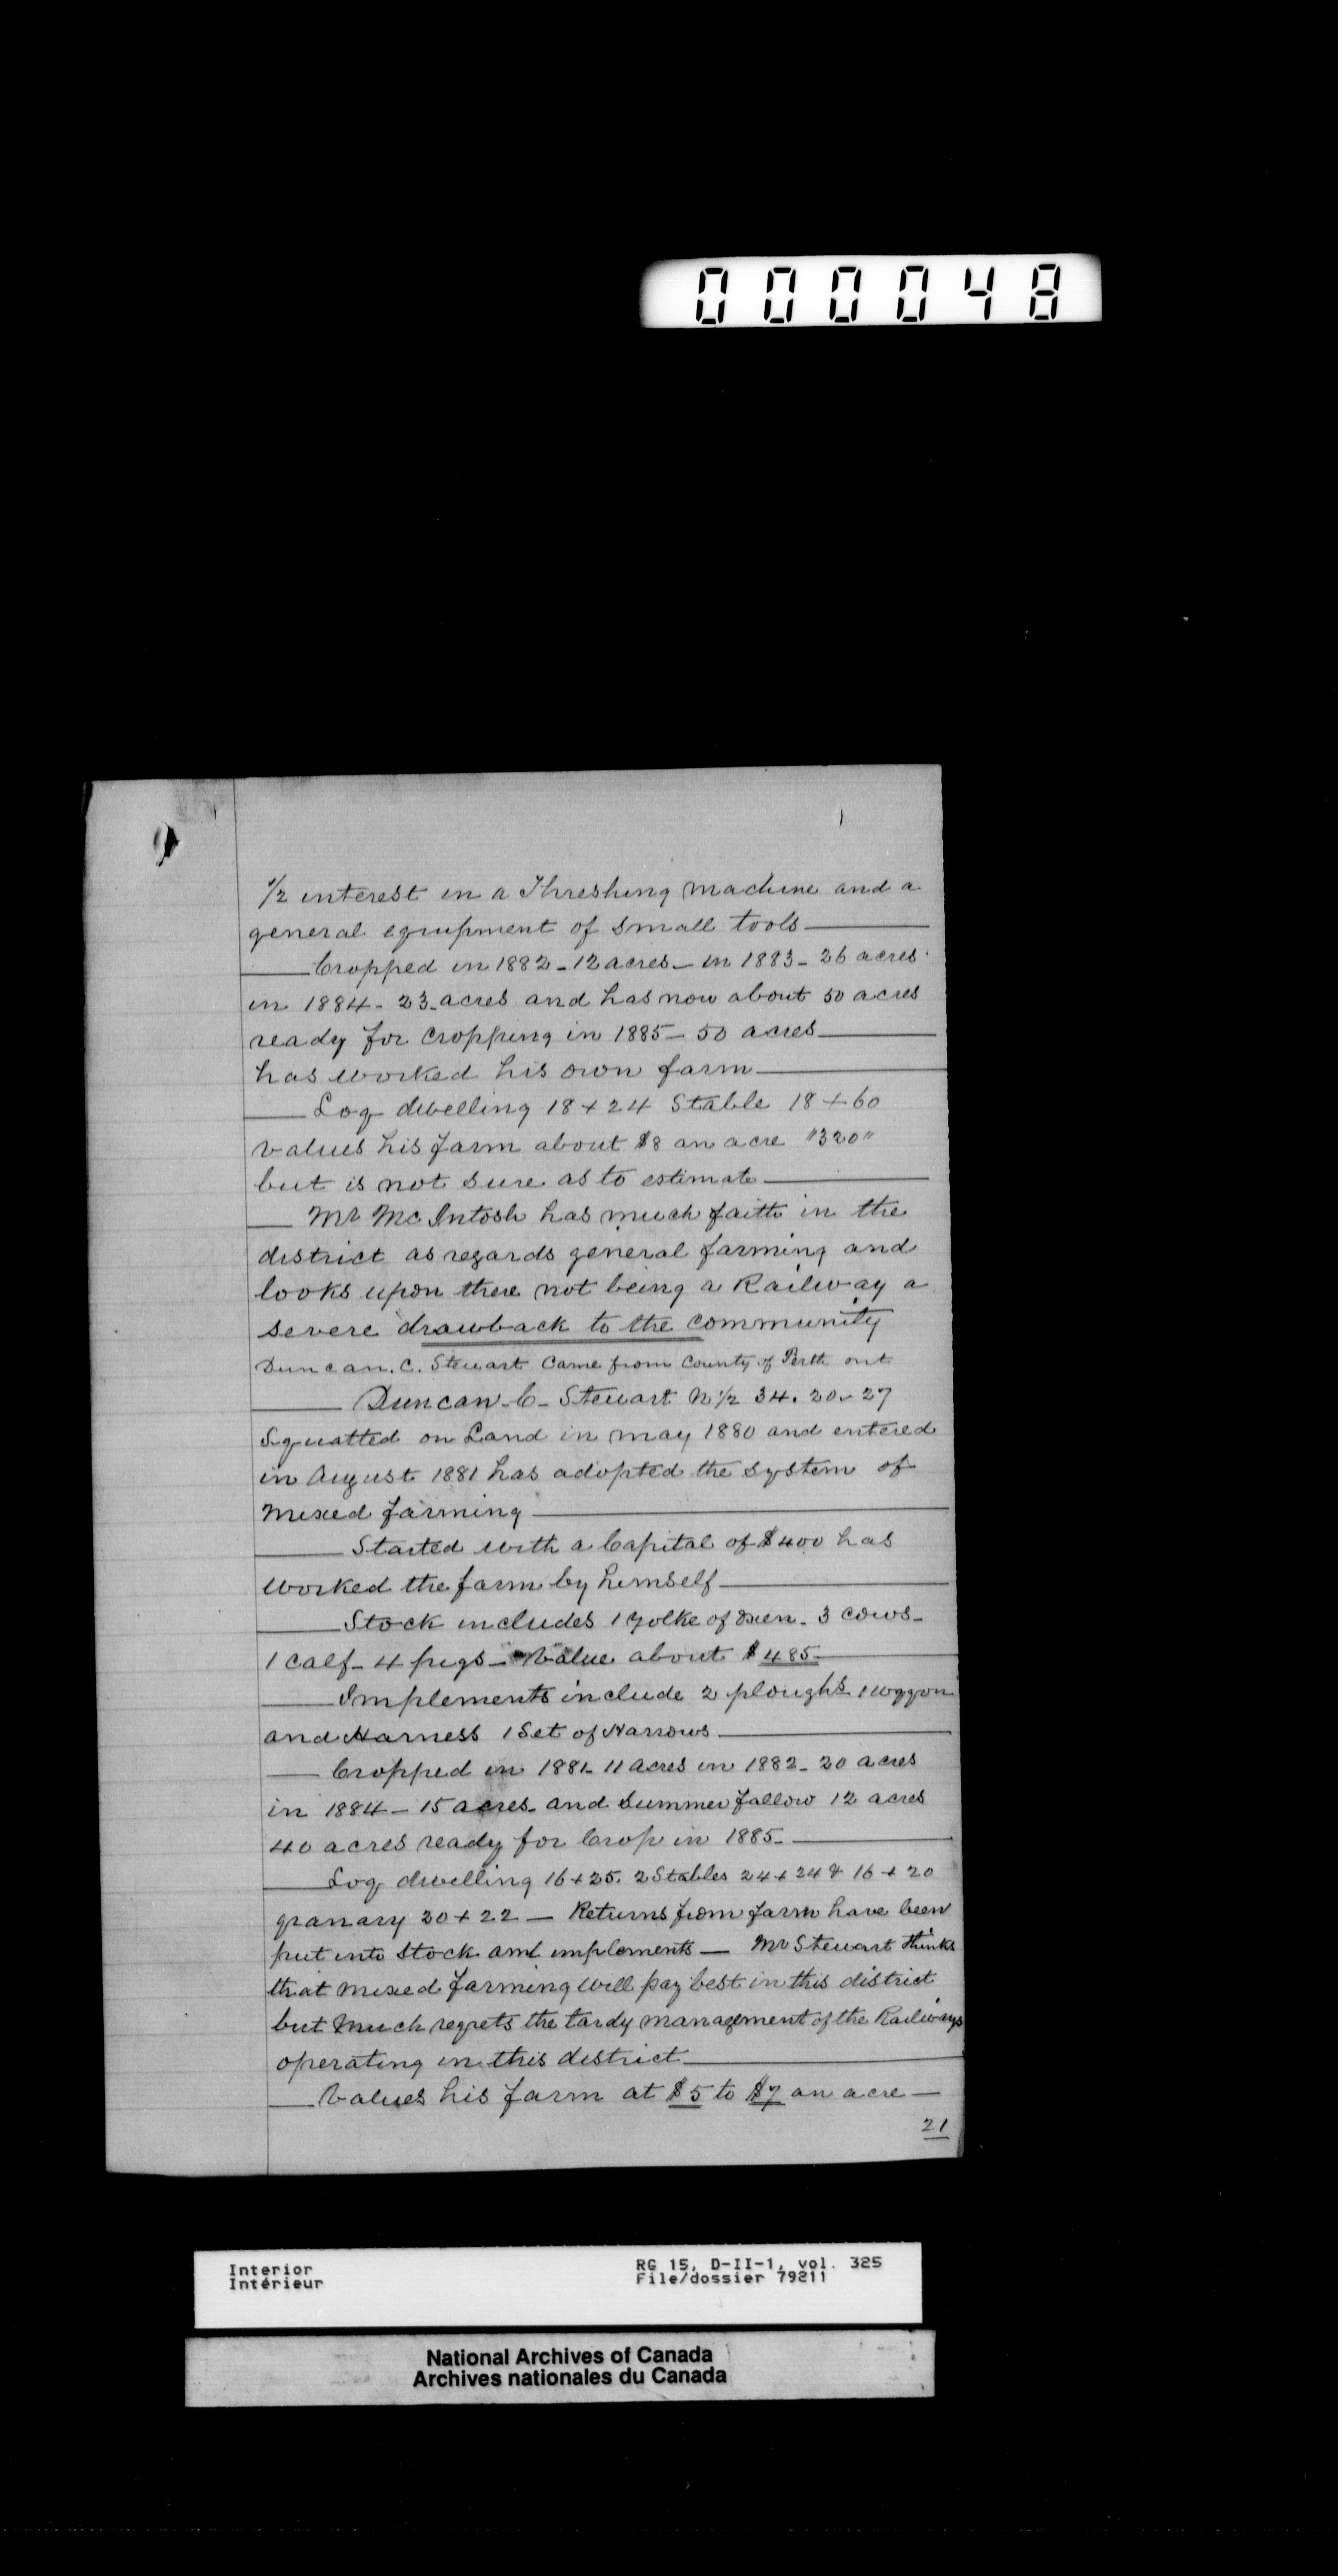 000048
1/2 interest in a Threshing machine and a
general equipment of small tools
Cropped in 1882 - 12 acres - in 1883 - 26 acres
in 1884 - 23 acres and has now about 50 acres
ready for cropping in 1885 - 50 acres
has worked his own farm
Log dwelling 18 + 24 Stable 18 + 60
values his farm about $8 an acre "320"
but is not sure as to estimate
Mr McIntosh has much faith in the
district as regards general farming and
looks upon there not being a Railway a
severe drawback to the community
Duncan. C. Stewart Came from County of Perth ont
Duncan - C - Stewart N 1/2 34. 20. 27
Squatted on Land in may 1880 and entered
in August 1881 has adopted the system of
mixed farming
Started with a Capital of $400 has
worked the farm by himself
Stock includes 1 yolke of oxen - 3 cows -
1 calf - 4 pigs - Value about $485 -
Implements include 2 ploughs 1 wggon
and Harness 1 Set of Harrows
Cropped in 1881 - 11 acres in 1882 - 20 acres
in 1884 - 15 acres - and Summer fallow 12 acres
40 acres ready for Crop in 1885 -
Log dwelling 16 + 25. 2 Stables 24 + 24 & 16 + 20
granary 20 + 22 - Returns from farm have been
put into Stock and implements - Mr Stewart thinks
that mixed farming will pay best in this district
but much regrets the tardy management of the Railways
operating in this district
Values his farm at $5 to $7 an acre -
21
Interior RG 15, D-II-1, vol. 325
Intérieur File/dossier 79211
National Archives of Canada
Archives nationales du Canada